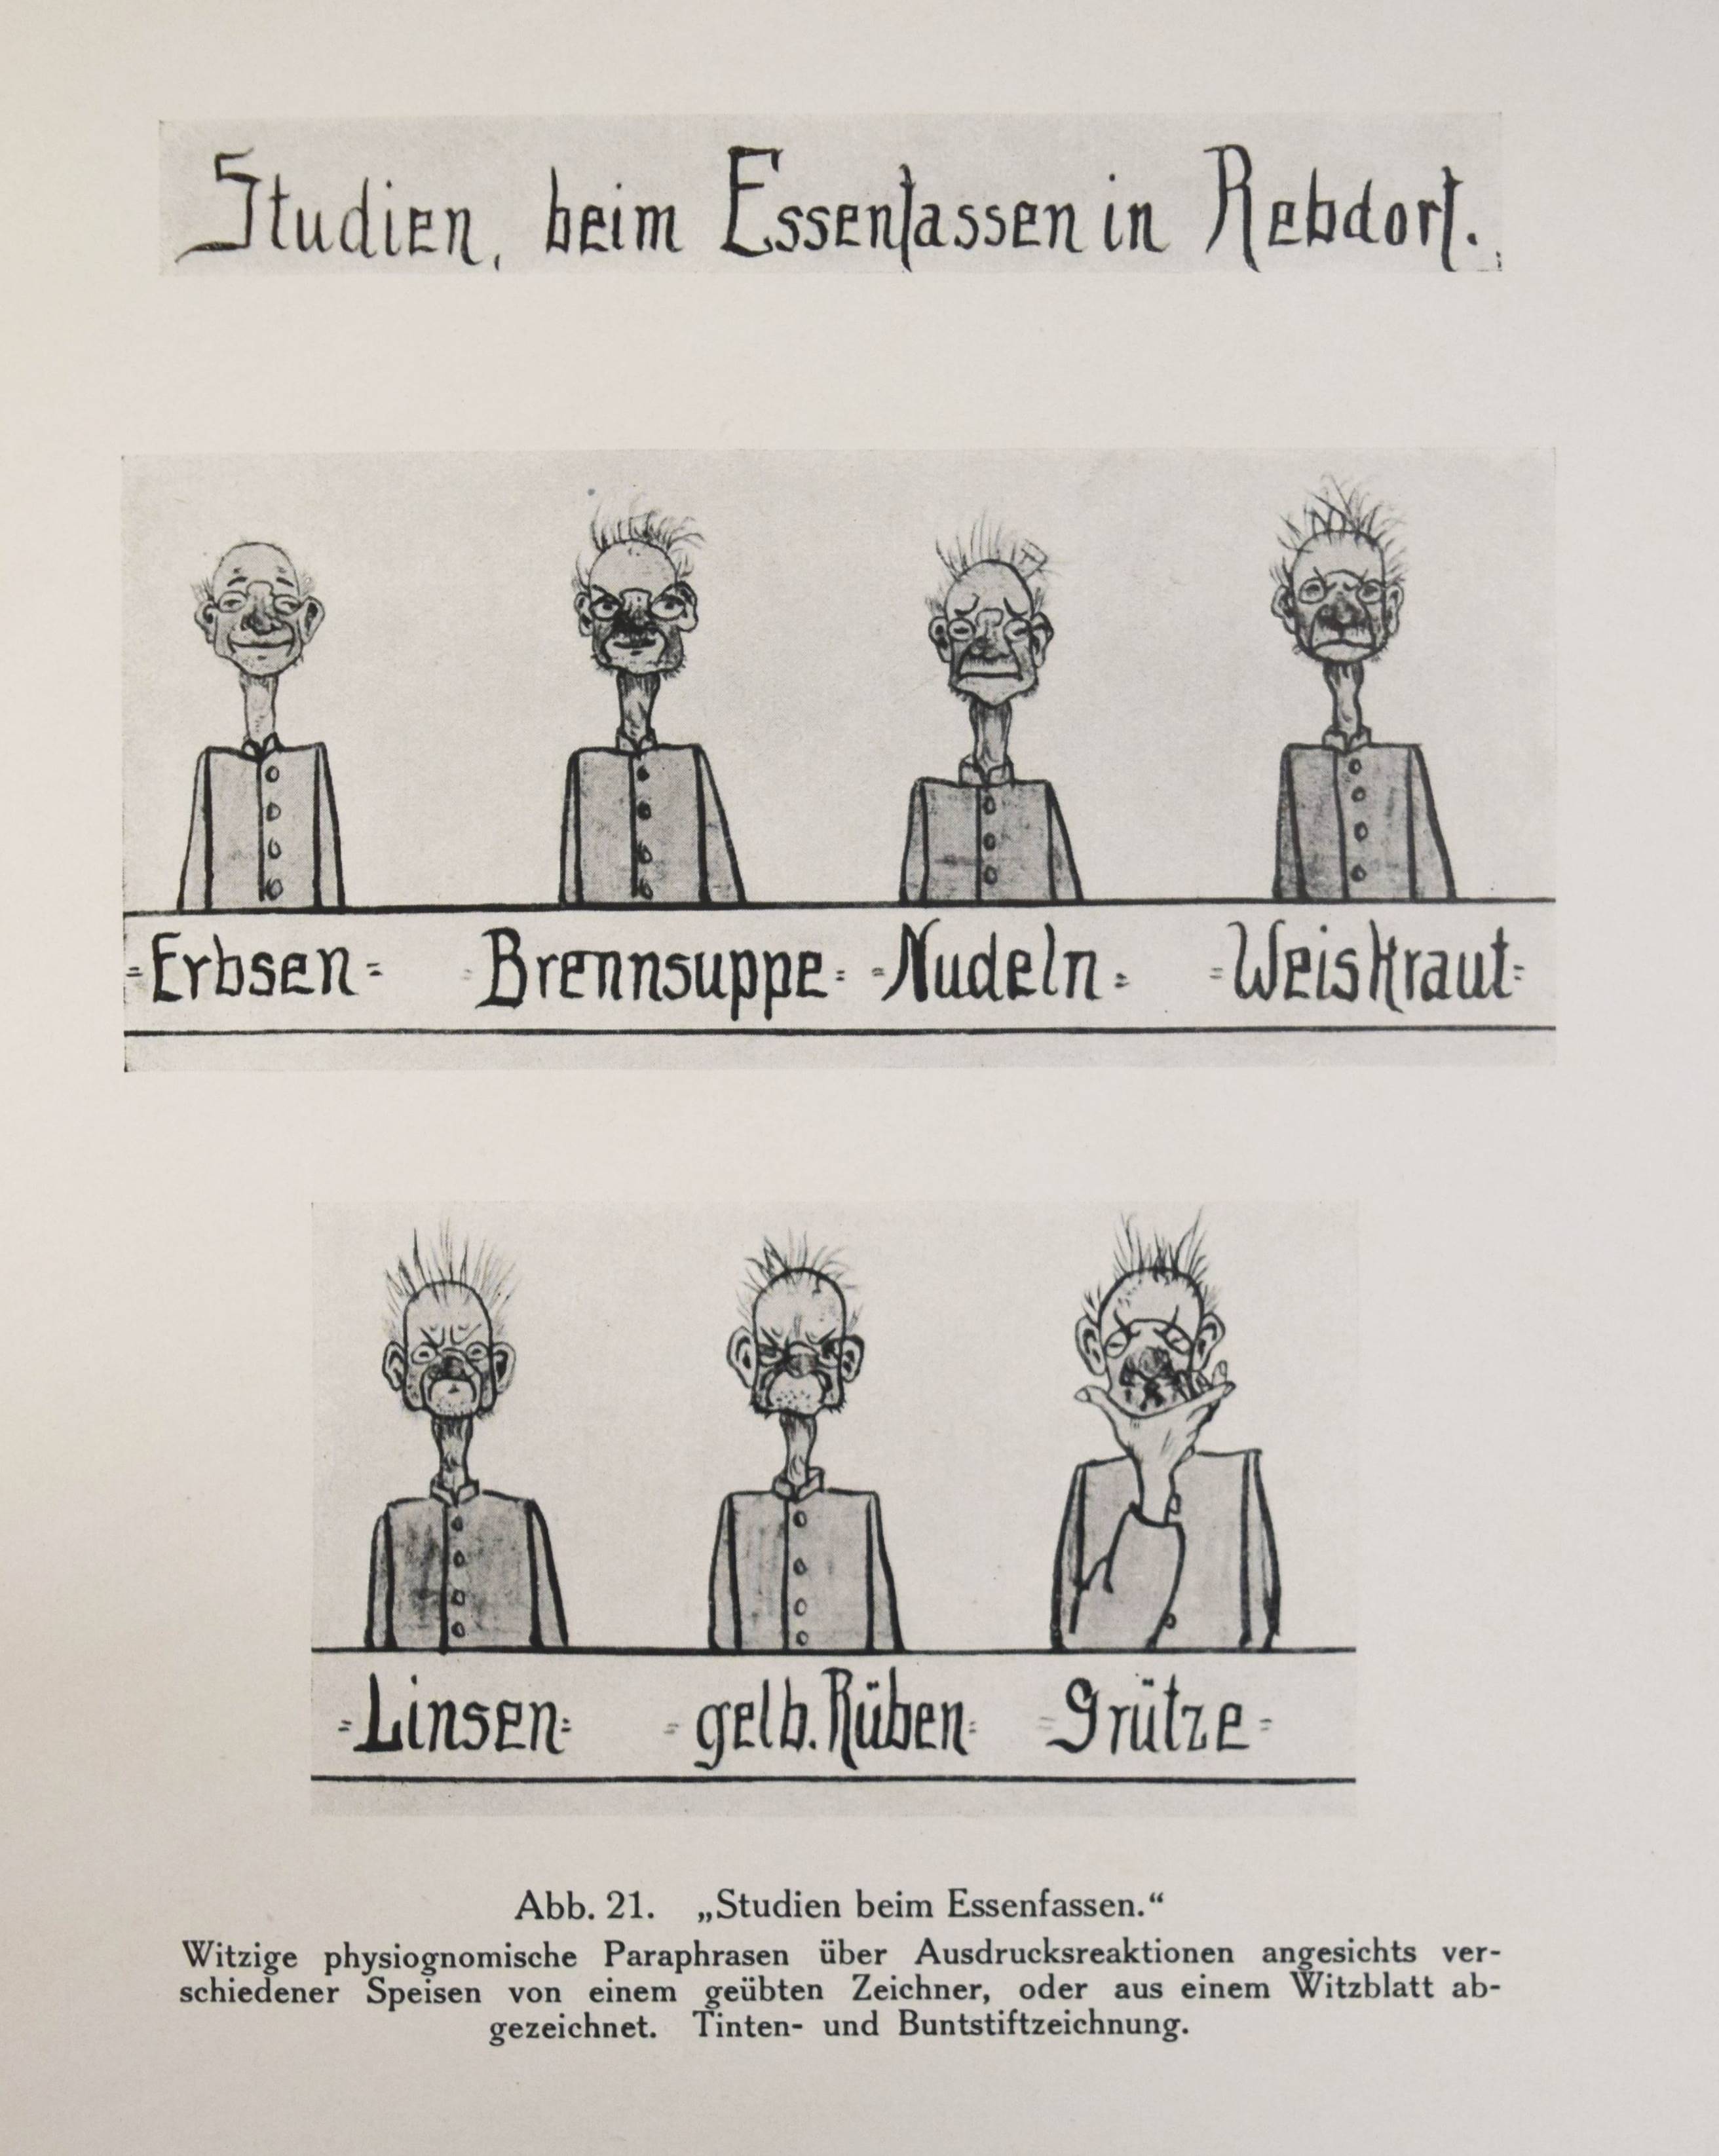 Studien, beim Essenfassen in Rebdorf.
=Erbsen= =Brennsuppe= =Nudeln= =Weiskraut=
=Linsen= =gelb. Rüben= =Grütze=
Abb. 21. „Studien beim Essenfassen.“
Witzige physiognomische Paraphrasen über Ausdrucksreaktionen angesichts ver-
schiedener Speisen von einem geübten Zeichner, oder aus einem Witzblatt ab-
gezeichnet. Tinten- und Buntstiftzeichnung.